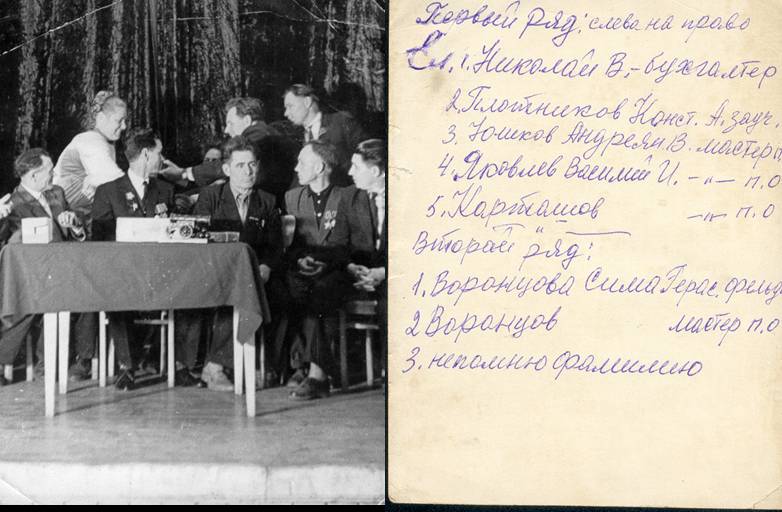 Первый ряд: слева на право
1. Николай В. - бухгалтер
2. Плотников Конст. А. зауч.
3. Юшков Андреян В. мастер п
4. Яковлев Василий И. -"- п.о
5. Карташов -"- п.о
Второй ряд:
1. Воронцова Сима Герас. фельд
2 Воронцов мастер п.о
3. непомню фамилию